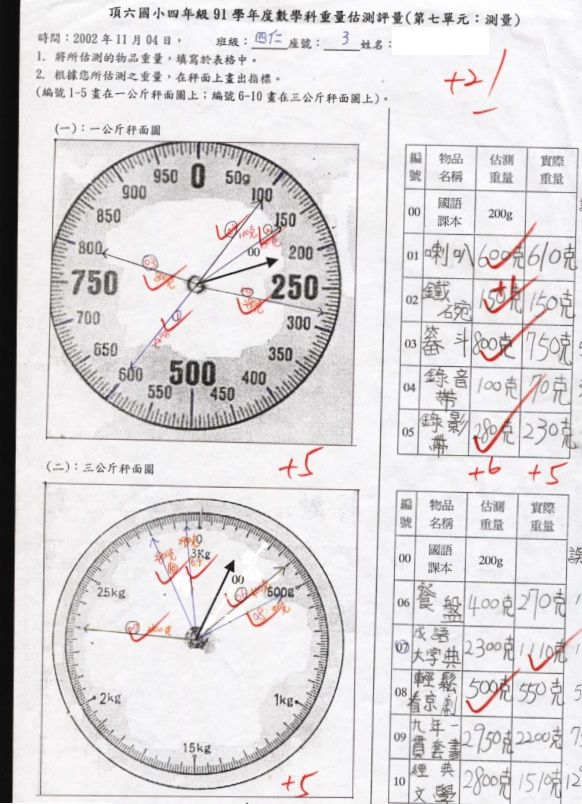 頂六國小四年級 91 學年度數學科重量估測評量(第七單元：測量)
時間：2002 年 11 月 04 日， 班級：四仁 座號：3 姓名：
1. 將所估測的物品重量，填寫於表格中。
2. 根據您所估測之重量，在秤面上畫出指標。
(編號 1-5 畫在一公斤秤面圖上；編號 6-10 畫在三公斤秤面圖上)。
+21
(一)：一公斤秤面圖
0
50g
100
150
200
250
300
350
400
450
500
550
600
650
700
750
800
850
900
950
00
03
+5
編號 物品名稱 估測重量 實際重量
00 國語課本 200g
01 喇叭 600克 610克
02 鐵碗 150克 150克
+1
03 畚斗 800克 750克
04 錄音帶 100克 70克
05 錄影帶 280克 230克
+6 +5
(二)：三公斤秤面圖
0
3Kg
500g
1kg
15kg
2kg
25kg
00
08
+5
編號 物品名稱 估測重量 實際重量
00 國語課本 200g
06 餐盤 400克 270克
07 成語大字典 2300克 1110克
08 輕鬆看京劇 500克 550克
09 九年一貫套書 2950克 2200克
10 經典文學 2800克 1510克